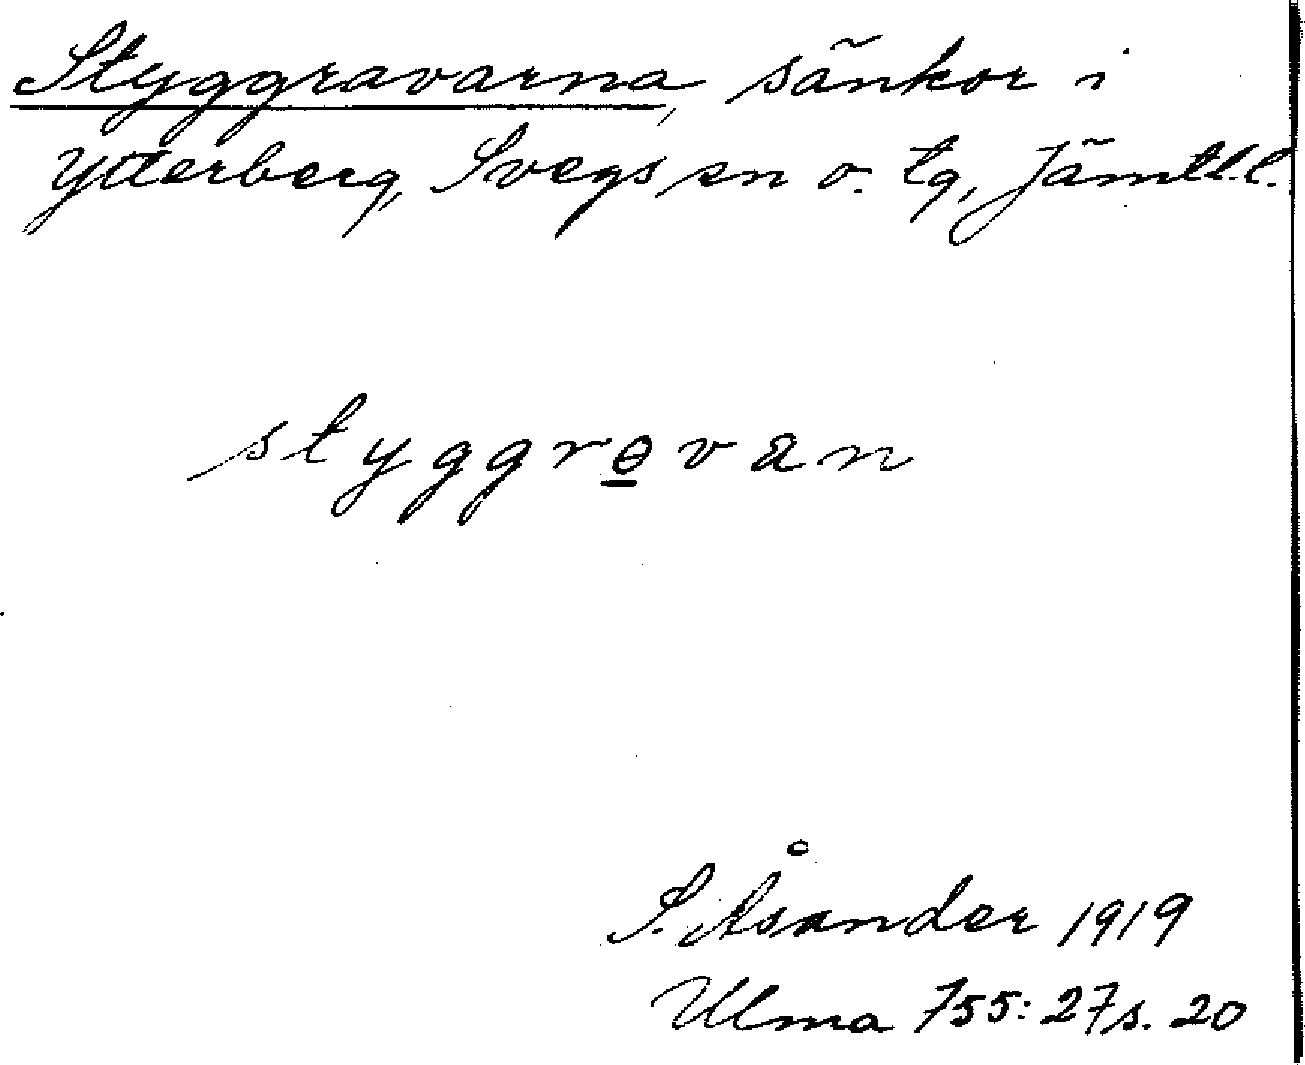 Styggravarna, sänkor i
Ytterberg, Svegs sn o. tg, Jämtl. l.
styggrɵ̱van
S. Åsander 1919
Ulma 755:27 s. 20